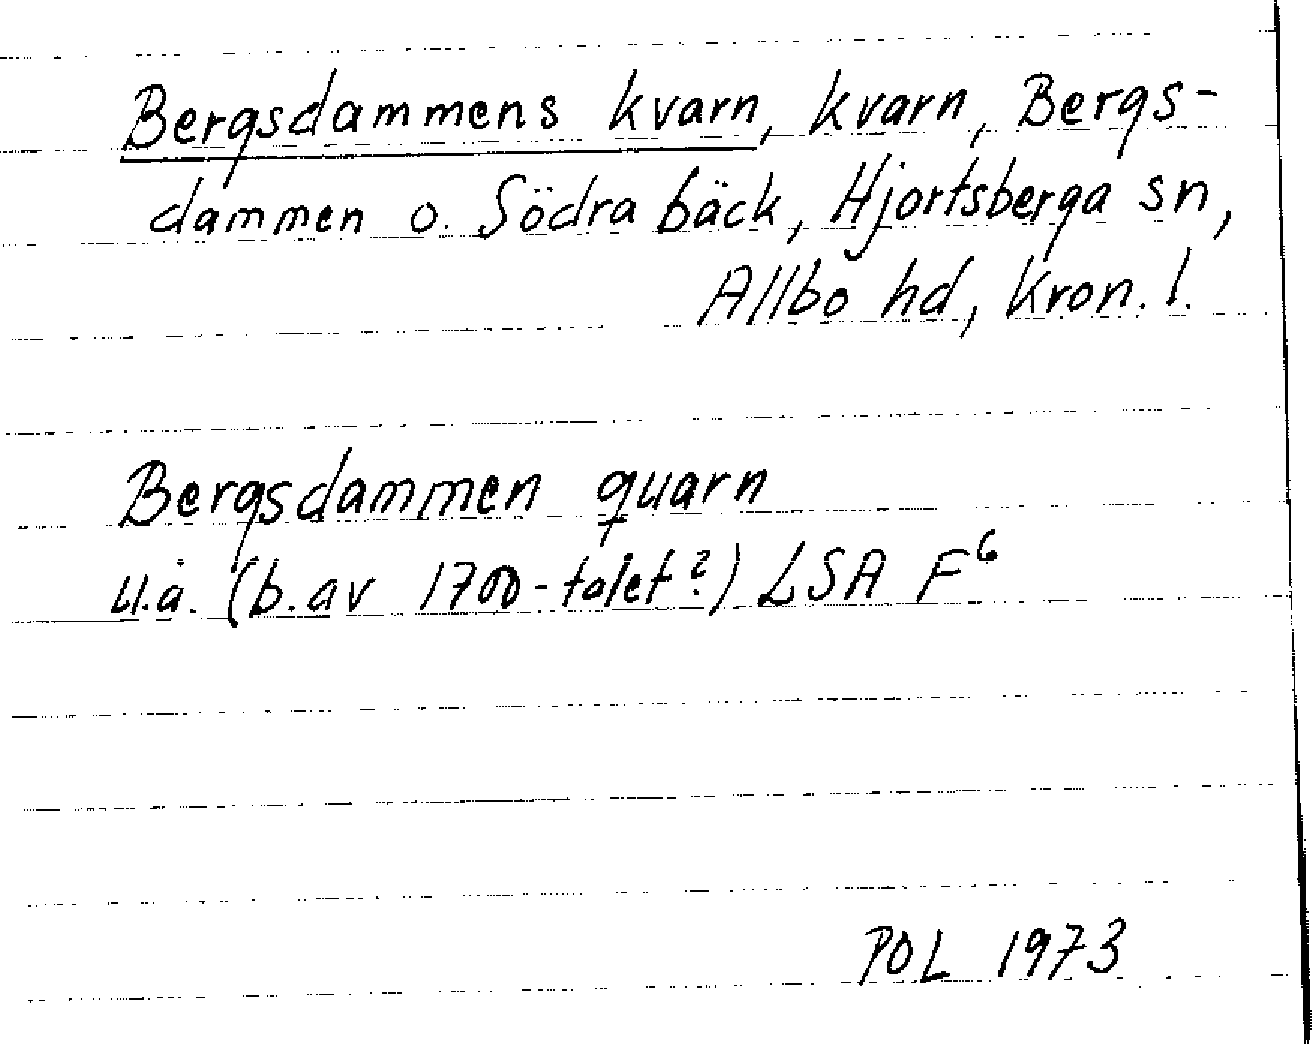 Bergsdammens kvarn, kvarn, Bergs-
dammen o. Södra bäck, Hjortsberga sn,
Allbo hd, Kron. l.
Bergsdammen quarn
u.å. (b. av 1700-talet?) LSA F⁶
POL 1973